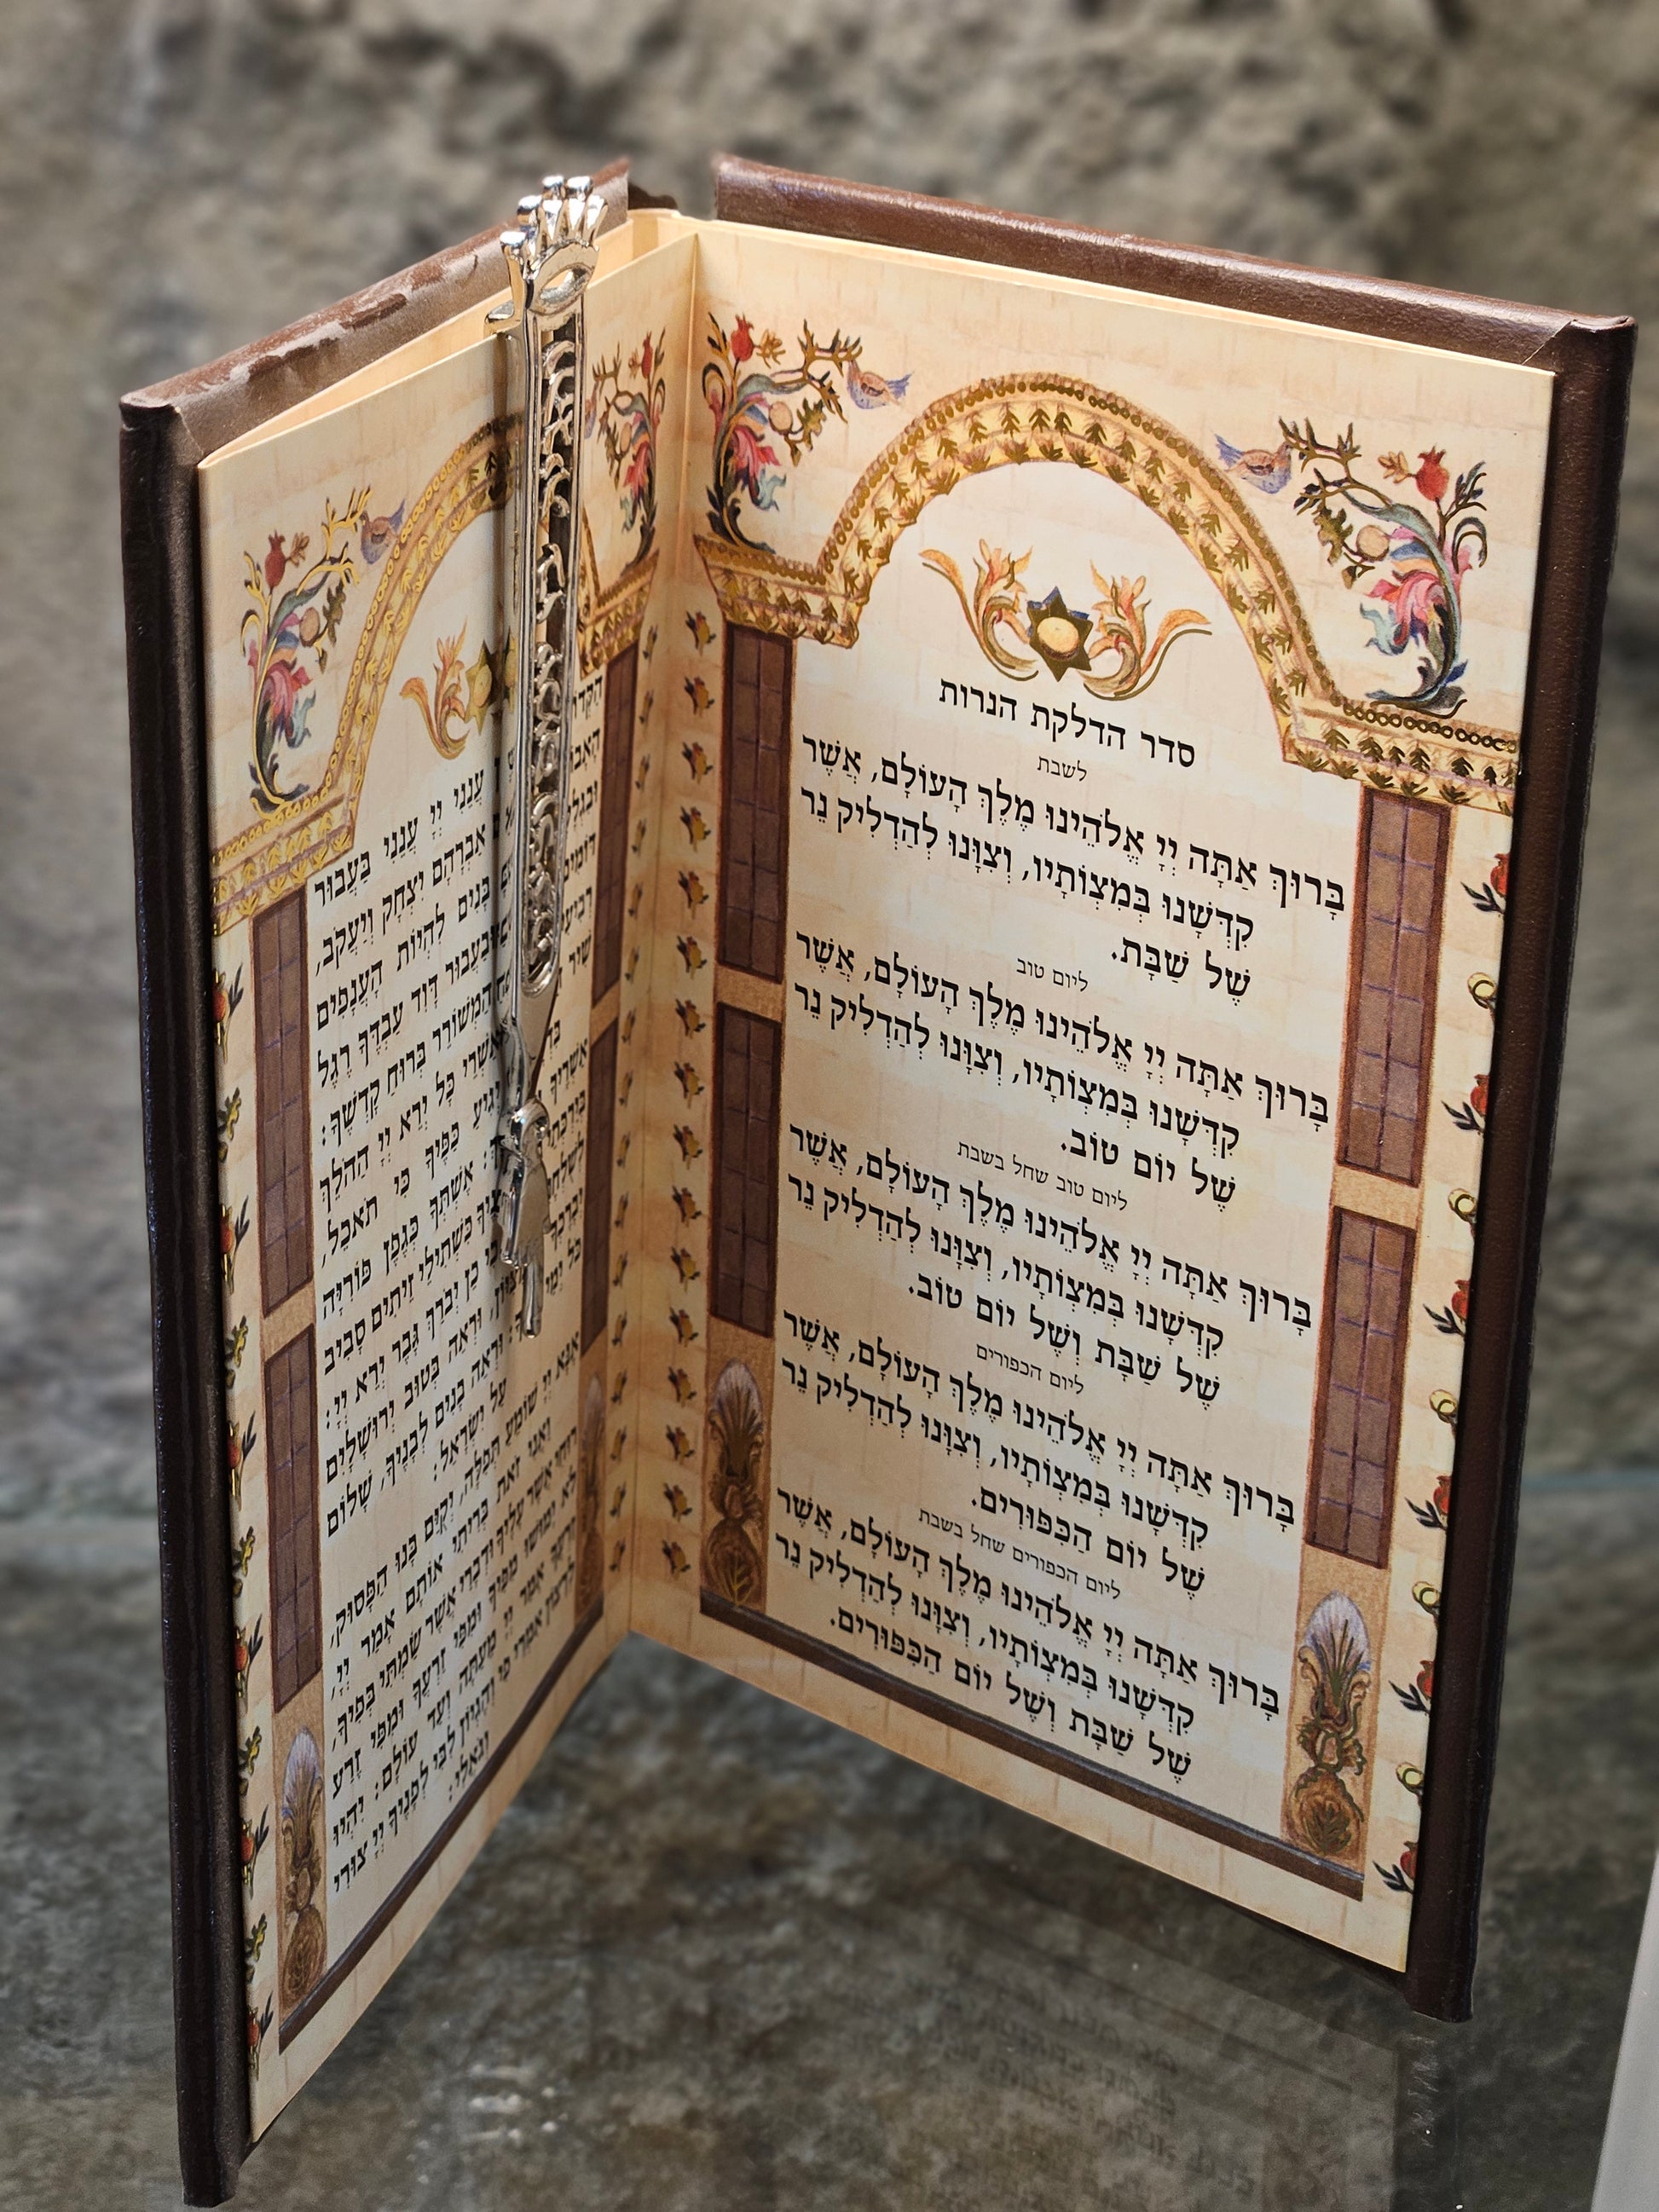 סדר הדלקת הנרות
לשבת
בָּרוּךְ אַתָּה יְיָ אֱלֹהֵינוּ מֶלֶךְ הָעוֹלָם, אֲשֶׁר
קִדְּשָׁנוּ בְּמִצְוֹתָיו, וְצִוָּנוּ לְהַדְלִיק נֵר
שֶׁל שַׁבָּת.
ליום טוב
בָּרוּךְ אַתָּה יְיָ אֱלֹהֵינוּ מֶלֶךְ הָעוֹלָם, אֲשֶׁר
קִדְּשָׁנוּ בְּמִצְוֹתָיו, וְצִוָּנוּ לְהַדְלִיק נֵר
שֶׁל יוֹם טוֹב.
ליום טוב שחל בשבת
בָּרוּךְ אַתָּה יְיָ אֱלֹהֵינוּ מֶלֶךְ הָעוֹלָם, אֲשֶׁר
קִדְּשָׁנוּ בְּמִצְוֹתָיו, וְצִוָּנוּ לְהַדְלִיק נֵר
שֶׁל שַׁבָּת וְשֶׁל יוֹם טוֹב.
ליום הכפורים
בָּרוּךְ אַתָּה יְיָ אֱלֹהֵינוּ מֶלֶךְ הָעוֹלָם, אֲשֶׁר
קִדְּשָׁנוּ בְּמִצְוֹתָיו, וְצִוָּנוּ לְהַדְלִיק נֵר
שֶׁל יוֹם הַכִּפּוּרִים.
ליום הכפורים שחל בשבת
בָּרוּךְ אַתָּה יְיָ אֱלֹהֵינוּ מֶלֶךְ הָעוֹלָם, אֲשֶׁר
קִדְּשָׁנוּ בְּמִצְוֹתָיו, וְצִוָּנוּ לְהַדְלִיק נֵר
שֶׁל שַׁבָּת וְשֶׁל יוֹם הַכִּפּוּרִים.
עֲנֵנִי יְיָ עֲנֵנִי בַּעֲבוּר
אַבְרָהָם יִצְחָק וְיַעֲקֹב,
בָּנִים לִהְיוֹת הָעֲנָפִים
וּבַעֲבוּר דָּוִד עַבְדֶּךָ רֶגֶל
הַמְשׁוֹרֵר בְּרוּחַ קָדְשֶׁךָ:
אַשְׁרֵי כָּל יְרֵא יְיָ הַהֹלֵךְ
יְגִיעַ כַּפֶּיךָ כִּי תֹאכֵל,
אַשְׁרֶיךָ אֶשְׁתְּךָ כְּגֶפֶן פּוֹרִיָּה
כִּשְׁתִילֵי זֵיתִים סָבִיב
כֵן יְבֹרַךְ גָּבֶר יְרֵא יְיָ:
וּרְאֵה בְּטוּב יְרוּשָׁלָיִם
כֹּל יְמֵי וּרְאֵה בָנִים לְבָנֶיךָ, שָׁלוֹם
עַל יִשְׂרָאֵל:
אָנָּא יְיָ שׁוֹמֵעַ תְּפִלָּה, יְקֻיַּם בָּנוּ הַפָּסוּק,
וַאֲנִי זֹאת בְּרִיתִי אוֹתָם אָמַר יְיָ,
רוּחִי אֲשֶׁר עָלֶיךָ וּדְבָרַי אֲשֶׁר שַׂמְתִּי בְּפִיךָ,
לֹא יָמוּשׁוּ מִפִּיךָ וּמִפִּי זַרְעֲךָ וּמִפִּי זֶרַע
זַרְעֲךָ אָמַר יְיָ מֵעַתָּה וְעַד עוֹלָם: יִהְיוּ
לְרָצוֹן אִמְרֵי פִי וְהֶגְיוֹן לִבִּי לְפָנֶיךָ יְיָ צוּרִי
וְגֹאֲלִי: